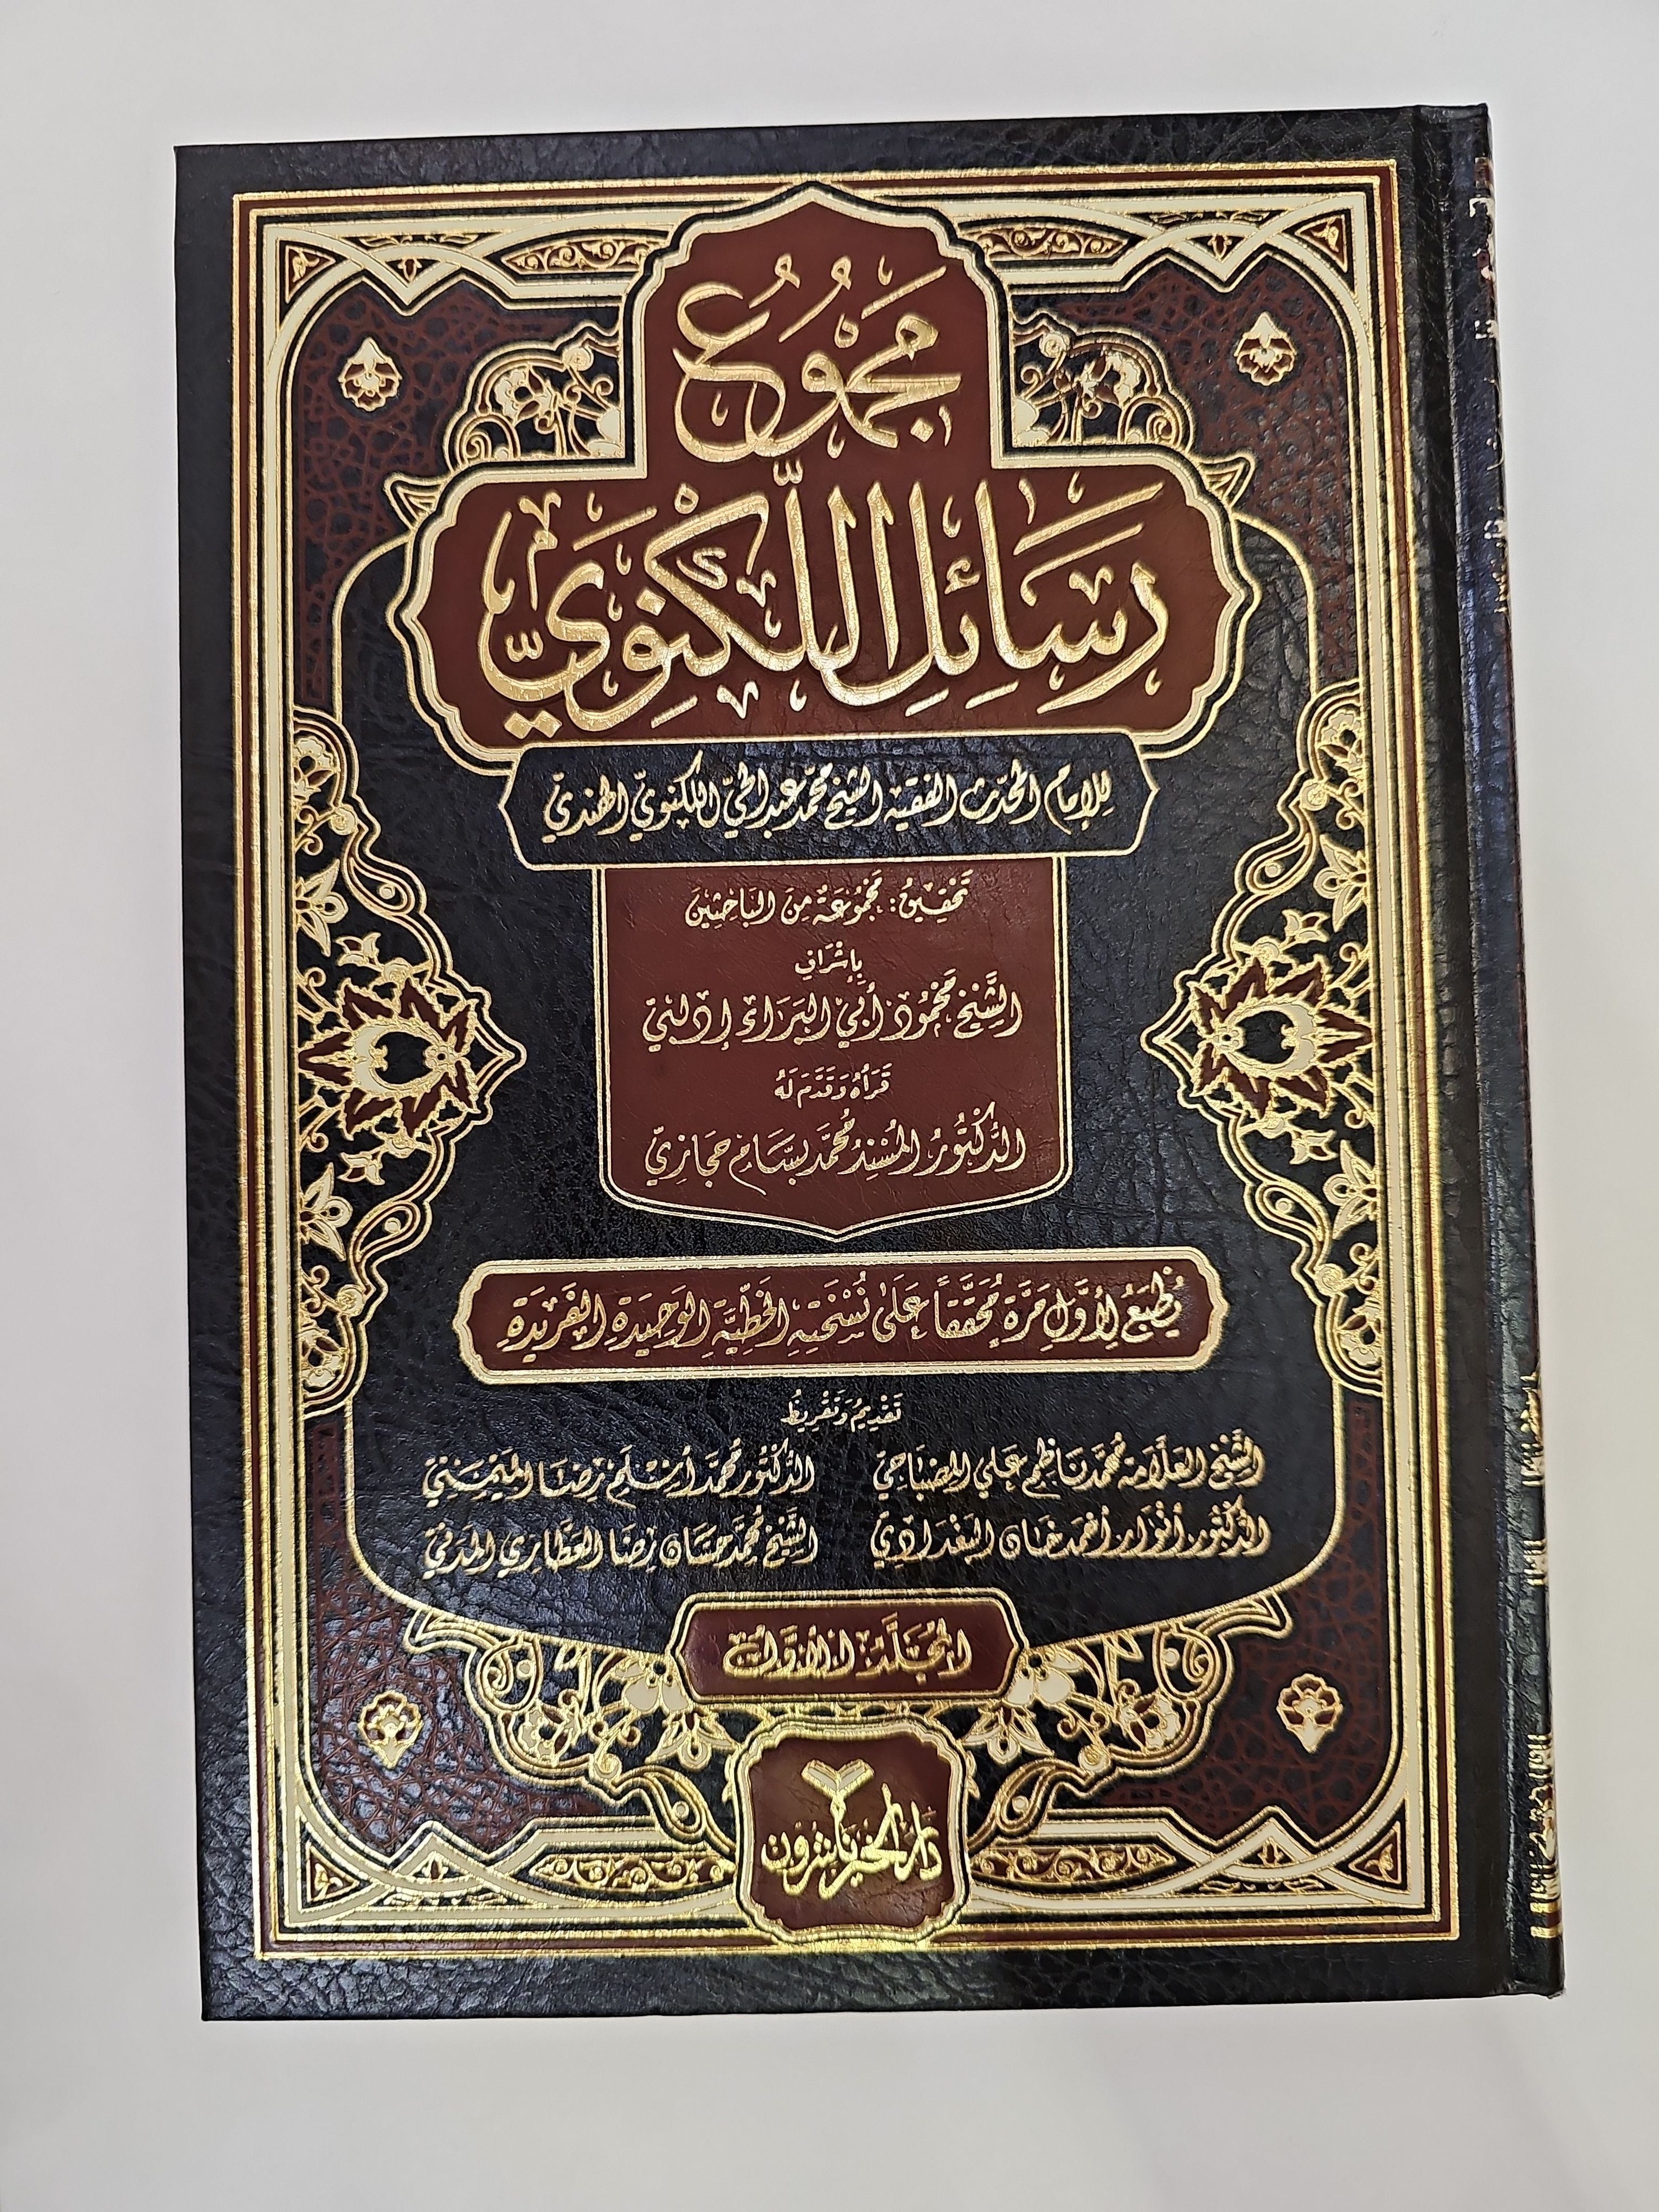 مجموع
رسائل اللكنوي
للإمام المحدّث الفقيه الشيخ محمّد عبد الحيّ اللكنويّ الهنديّ
تَحْقِيقُ: مَجْمُوعَةٌ مِنَ البَاحِثِينَ
بِإِشْرَافِ
الشَّيْخِ مَحْمُود أَبِي البَرَاء إِدلبيّ
قَرَأَهُ وَقَدَّمَ لَهُ
الدُّكْتُورُ المُسْنِدُ مُحَمَّد بَسَّام حِجَازِيّ
يُطْبَعُ لِأَوَّلِ مَرَّةٍ مُحَقَّقاً عَلَى نُسْخَتِهِ الخَطِّيَّةِ الوَحِيدَةِ الفَرِيدَةِ
تَقْدِيمُ وَتَقْرِيظُ
الشَّيْخ العَلَّامَة مُحَمَّد نَاظِم عَلي المِصْبَاحِيّ الدُّكْتُور مُحَمَّد أَسْلَم رِضَا المَيْمَنِيّ
الدُّكْتُور أَنْوَار أَحْمَد خَان البَغْدَادِيّ الشَّيْخ مُحَمَّد حَسَّان رِضَا العَطَّارِيّ المَدَنِيّ
المُجَلَّدُ الأَوَّلُ
دار الخير ناشرون